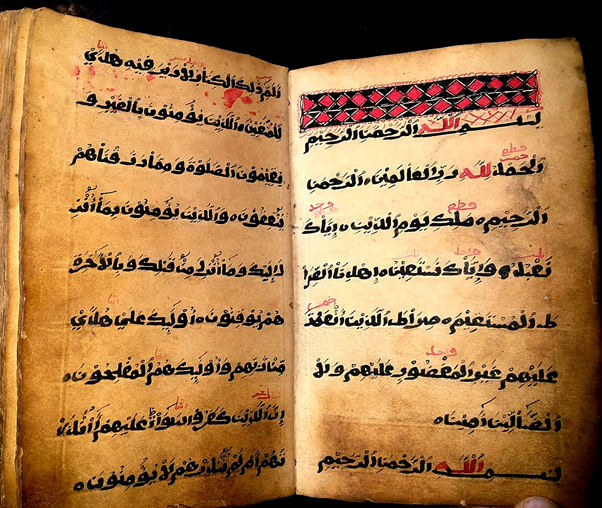 بسم الله الرحمن الرحيم
الحمد لله رب العالمين الرحمن
الرحيم ملك يوم الدين إياك
نعبد وإياك نستعين اهدنا الصرا
ط المستقيم صراط الذين أنعمت
عليهم غير المغضوب عليهم ولا
الضالين آمين
بسم الله الرحمن الرحيم
الم ذلك الكتاب لا ريب فيه هدى
للمتقين الذين يؤمنون بالغيب و
يقيمون الصلوة ومما رزقناهم
ينفقون والذين يؤمنون بما أنز
ل إليك وما أنزل من قبلك وبالآخرة
هم يوقنون أولئك على هدى
من ربهم وأولئك هم المفلحون
إن الذين كفروا سواء عليهم أأنذر
تهم أم لم تنذرهم لا يؤمنون